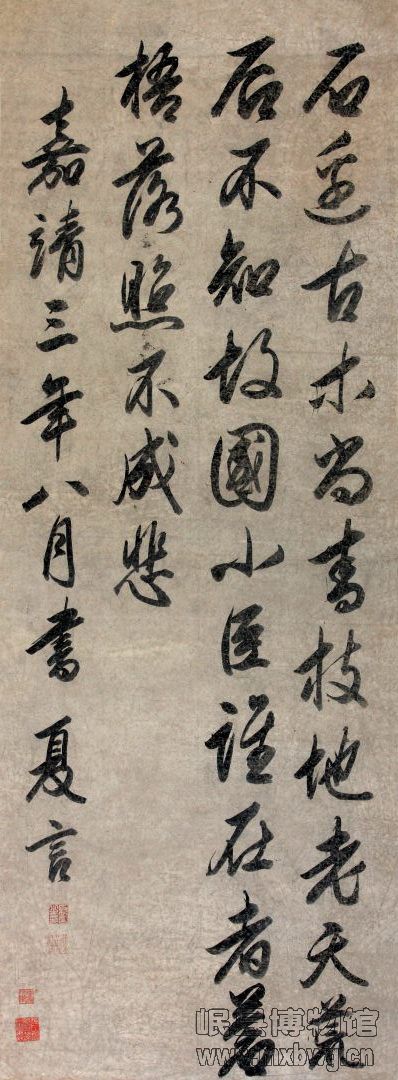 石邊古木尚青枝地老天荒
后不知故國小臣誰在者蒼
梧落照不成悲
嘉靖三年八月書 夏言
岷县博物馆
www.mxbwg.cn